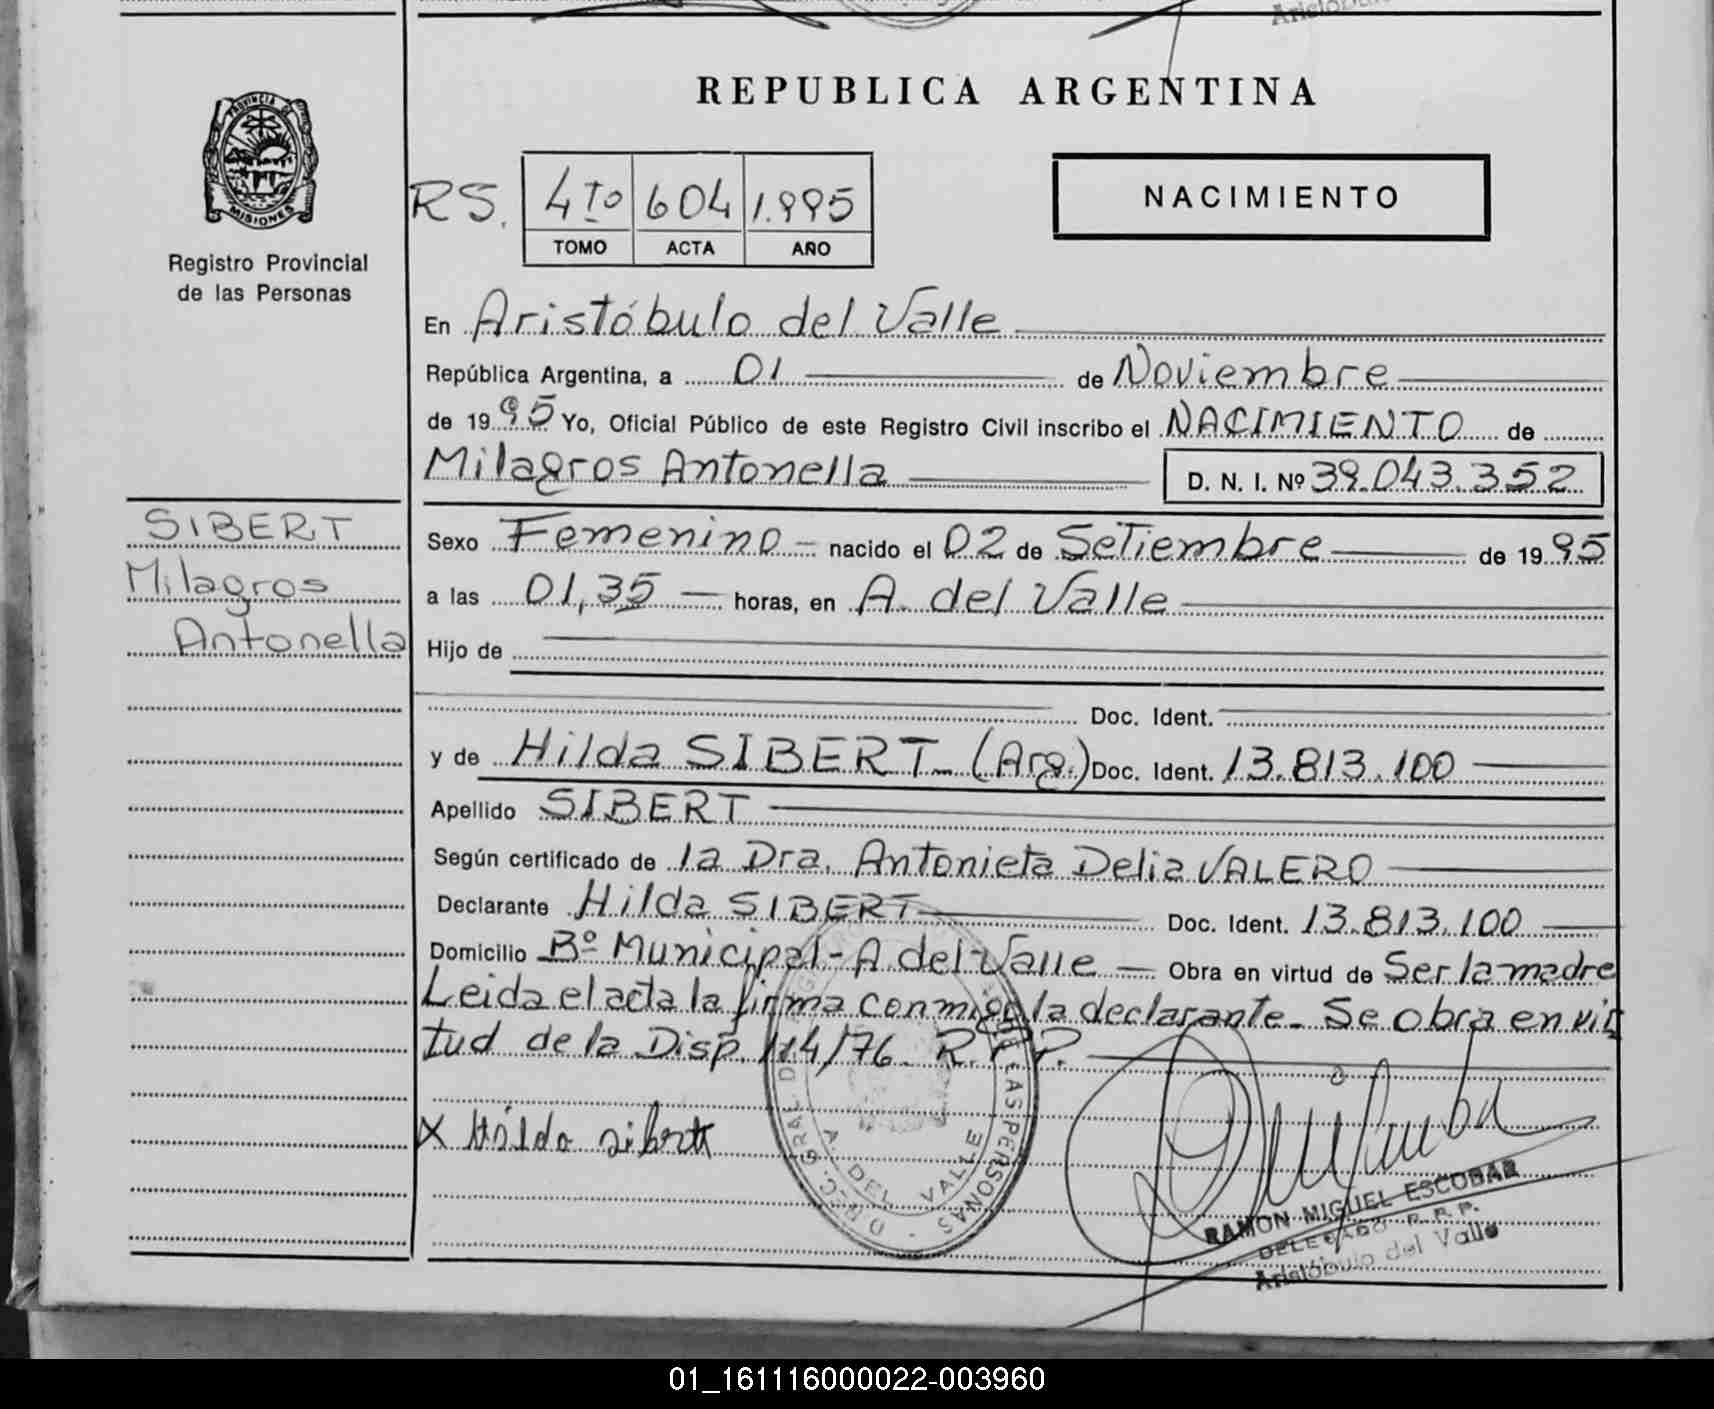 Aristóbulo
REPUBLICA ARGENTINA
PROVINCIA DE
MISIONES
Registro Provincial
de las Personas
RS. 4To 604 1.995
TOMO ACTA AÑO
NACIMIENTO
En Aristóbulo del Valle
República Argentina, a 01 de Noviembre
de 1995 Yo, Oficial Público de este Registro Civil inscribo el NACIMIENTO de
Milagros Antonella D. N. I. Nº 39.043.352
SIBERT
Milagros
Antonella
Sexo Femenino nacido el 02 de Setiembre de 1995
a las 01,35 horas, en A. del Valle
Hijo de
Doc. Ident.
y de Hilda SIBERT (Arg.) Doc. Ident. 13.813.100
Apellido SIBERT
Según certificado de la Dra. Antonieta Delia VALERO
Declarante Hilda SIBERT Doc. Ident. 13.813.100
Domicilio Bº Municipal - A del Valle Obra en virtud de Ser la madre
Leida el acta la firma conmigo la declarante. Se obra en vir
tud de la Disp. 114/76 R.P.P.
X Hilda sibert
A. DEL VALLE
RAMON MIGUEL ESCOBAR
DELEGADO R.P.P.
Aristóbulo del Valle
01_161116000022-003960